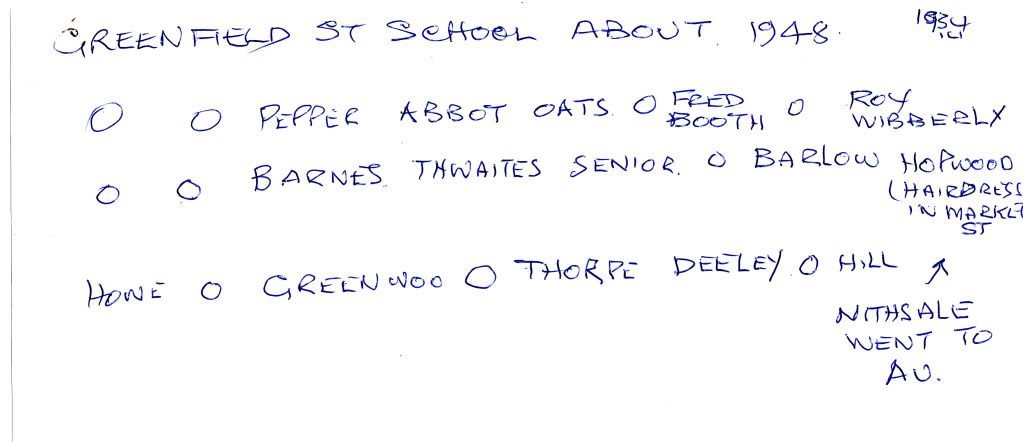 GREENFIELD ST SCHOOL ABOUT 1948.
O O PEPPER ABBOT OATS. O FRED BOOTH O ROY WIBBERLY
O O BARNES. THWAITES SENIOR. O BARLOW HOPWOOD
(HAIRDRESS
IN MARKET
ST
HOWE O GREENWOO O THORPE DEELEY. O HILL
NITHSALE
WENT TO
AU.